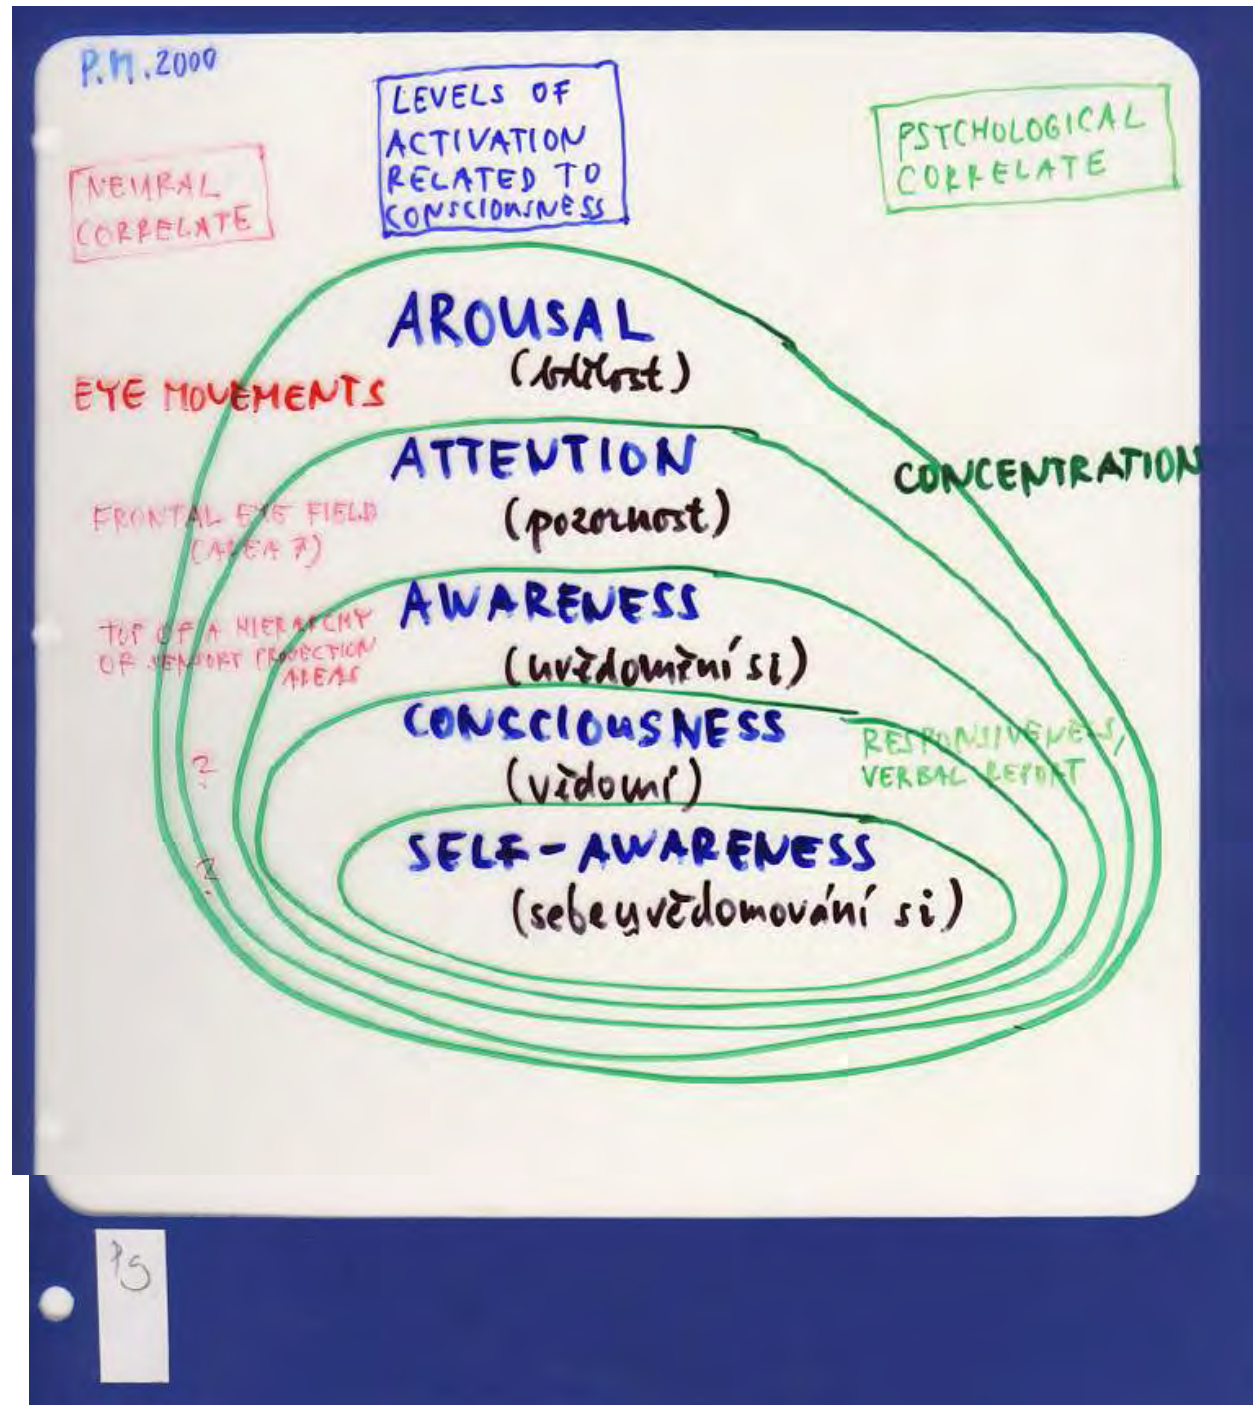 P.M. 2000
NEURAL
CORRELATE
LEVELS OF
ACTIVATION
RELATED TO
CONSCIOUSNESS
PSYCHOLOGICAL
CORRELATE
AROUSAL
(bdělost)
EYE MOVEMENTS
ATTENTION
(pozornost)
CONCENTRATION
FRONTAL EYE FIELD
(AREA 7)
AWARENESS
(uvědomění si)
TOP OF A HIERARCHY
OF SENSORY PROJECTION
AREAS
CONSCIOUSNESS
(vědomí)
RESPONSIVENESS,
VERBAL REPORT
?
SELF-AWARENESS
(sebeuvědomování si)
?